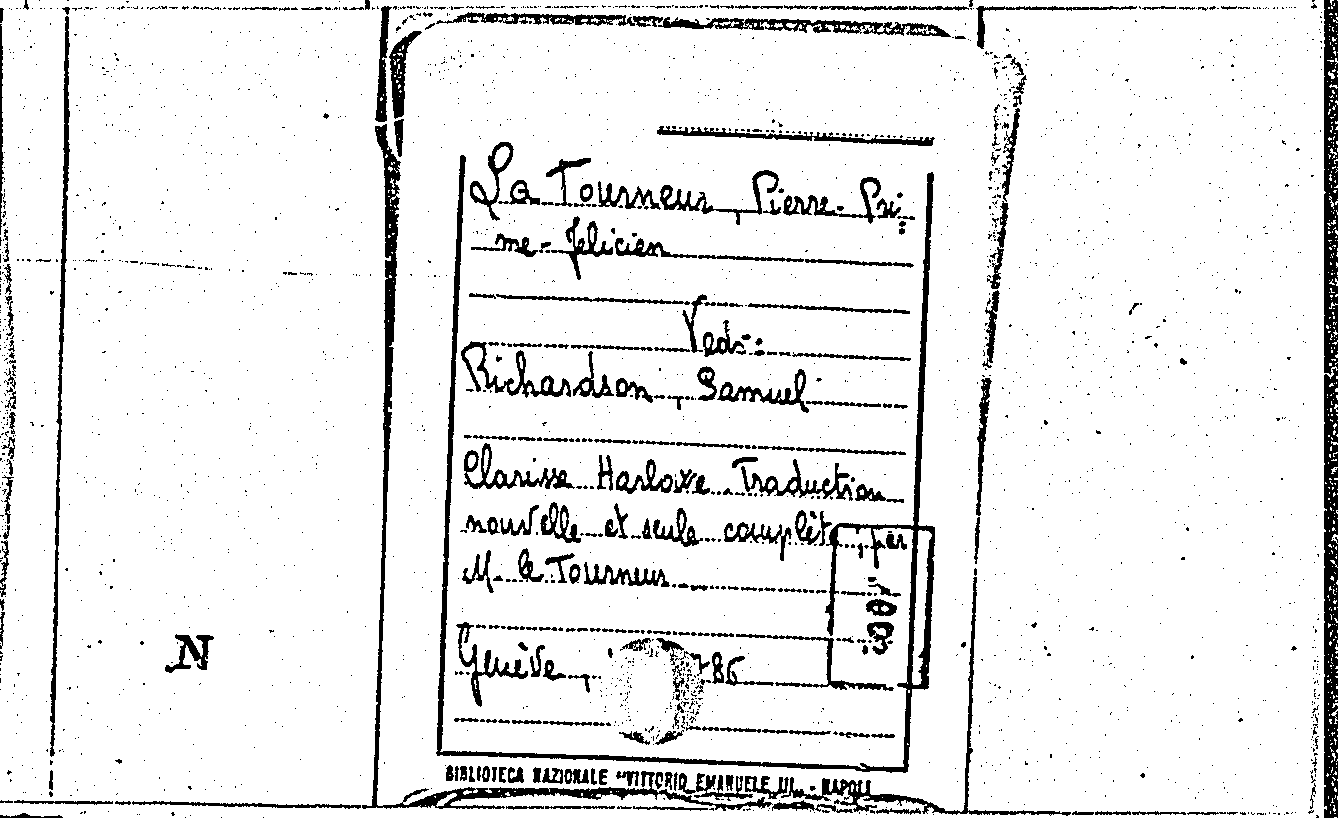 La Tourneur, Pierre-Pri=
me-Felicien
Vedi:
Richardson, Samuel
Clarisse Harlowe. Traduction
nouvelle et seule complète, par
M. le Tourneur
Genève, 786
N
BIBLIOTECA NAZIONALE "VITTORIO EMANUELE III" - NAPOLI